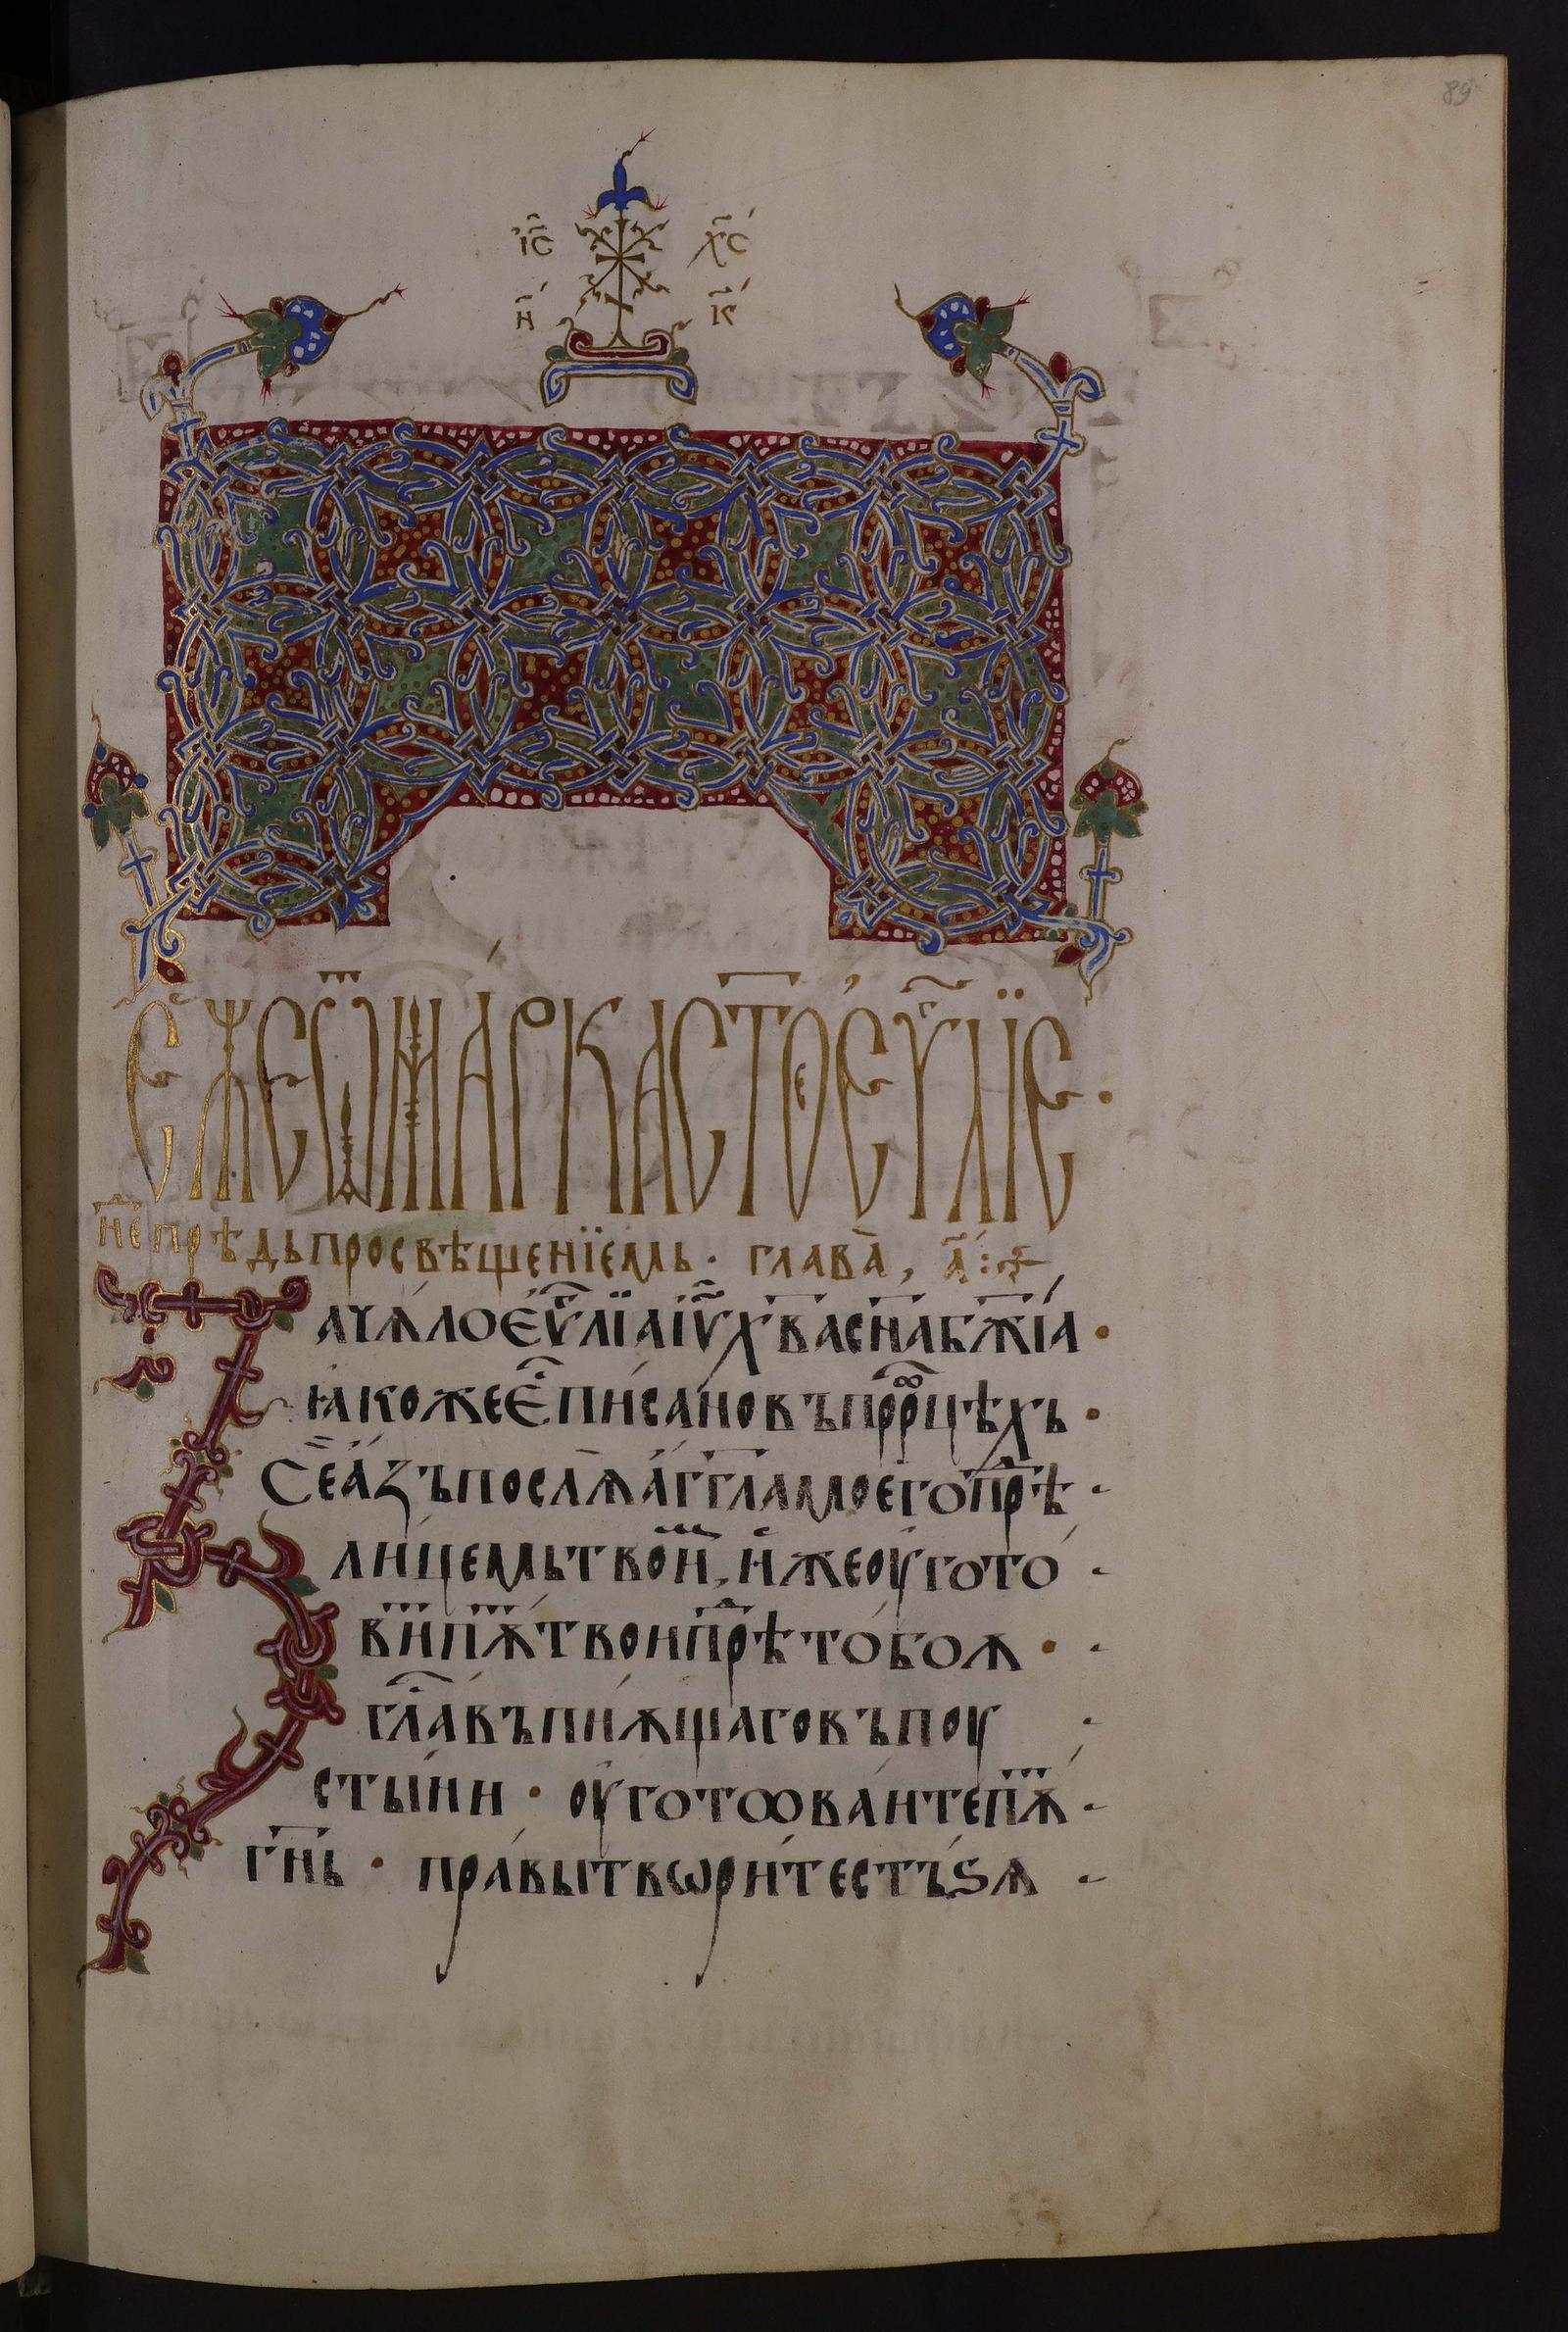 89
І҃С Х҃С
Н҃И К҃А
Е́ЖЕ Ѿ МА́РКА СТ҃ОЕ Е҆Ѵ҃ЛЇЕ ·
н҃е прѣдь просвѣщенїемь · глава̀, а҃ :
Зачѧло е҆ѵ҃лїа і҆ѵ҃ х҃ва сн҃а бж҃їа ·
ꙗкоже е҆с҃ пи́сано въ прⷪ҇рцѣхь ·
Се а́зъ посл̀ѫ а́гг҃ла моего прѣⷣ
лицемь твои҆мь, и҆же оуготѡ
ви́ть пѫ́ть твои прѣⷣ тобоѫ ·
гл҃а въпи́ѫщаго въ поу
сты́ни · оуготоова́ите пѫ́ть
гн҃ь · пра́вы творите стъѕѧ